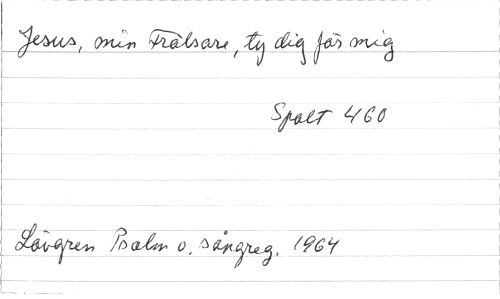 Jesus, min Frälsare, ty dig för mig
Spalt 460
Lövgren Psalm o. sångreg. 1964